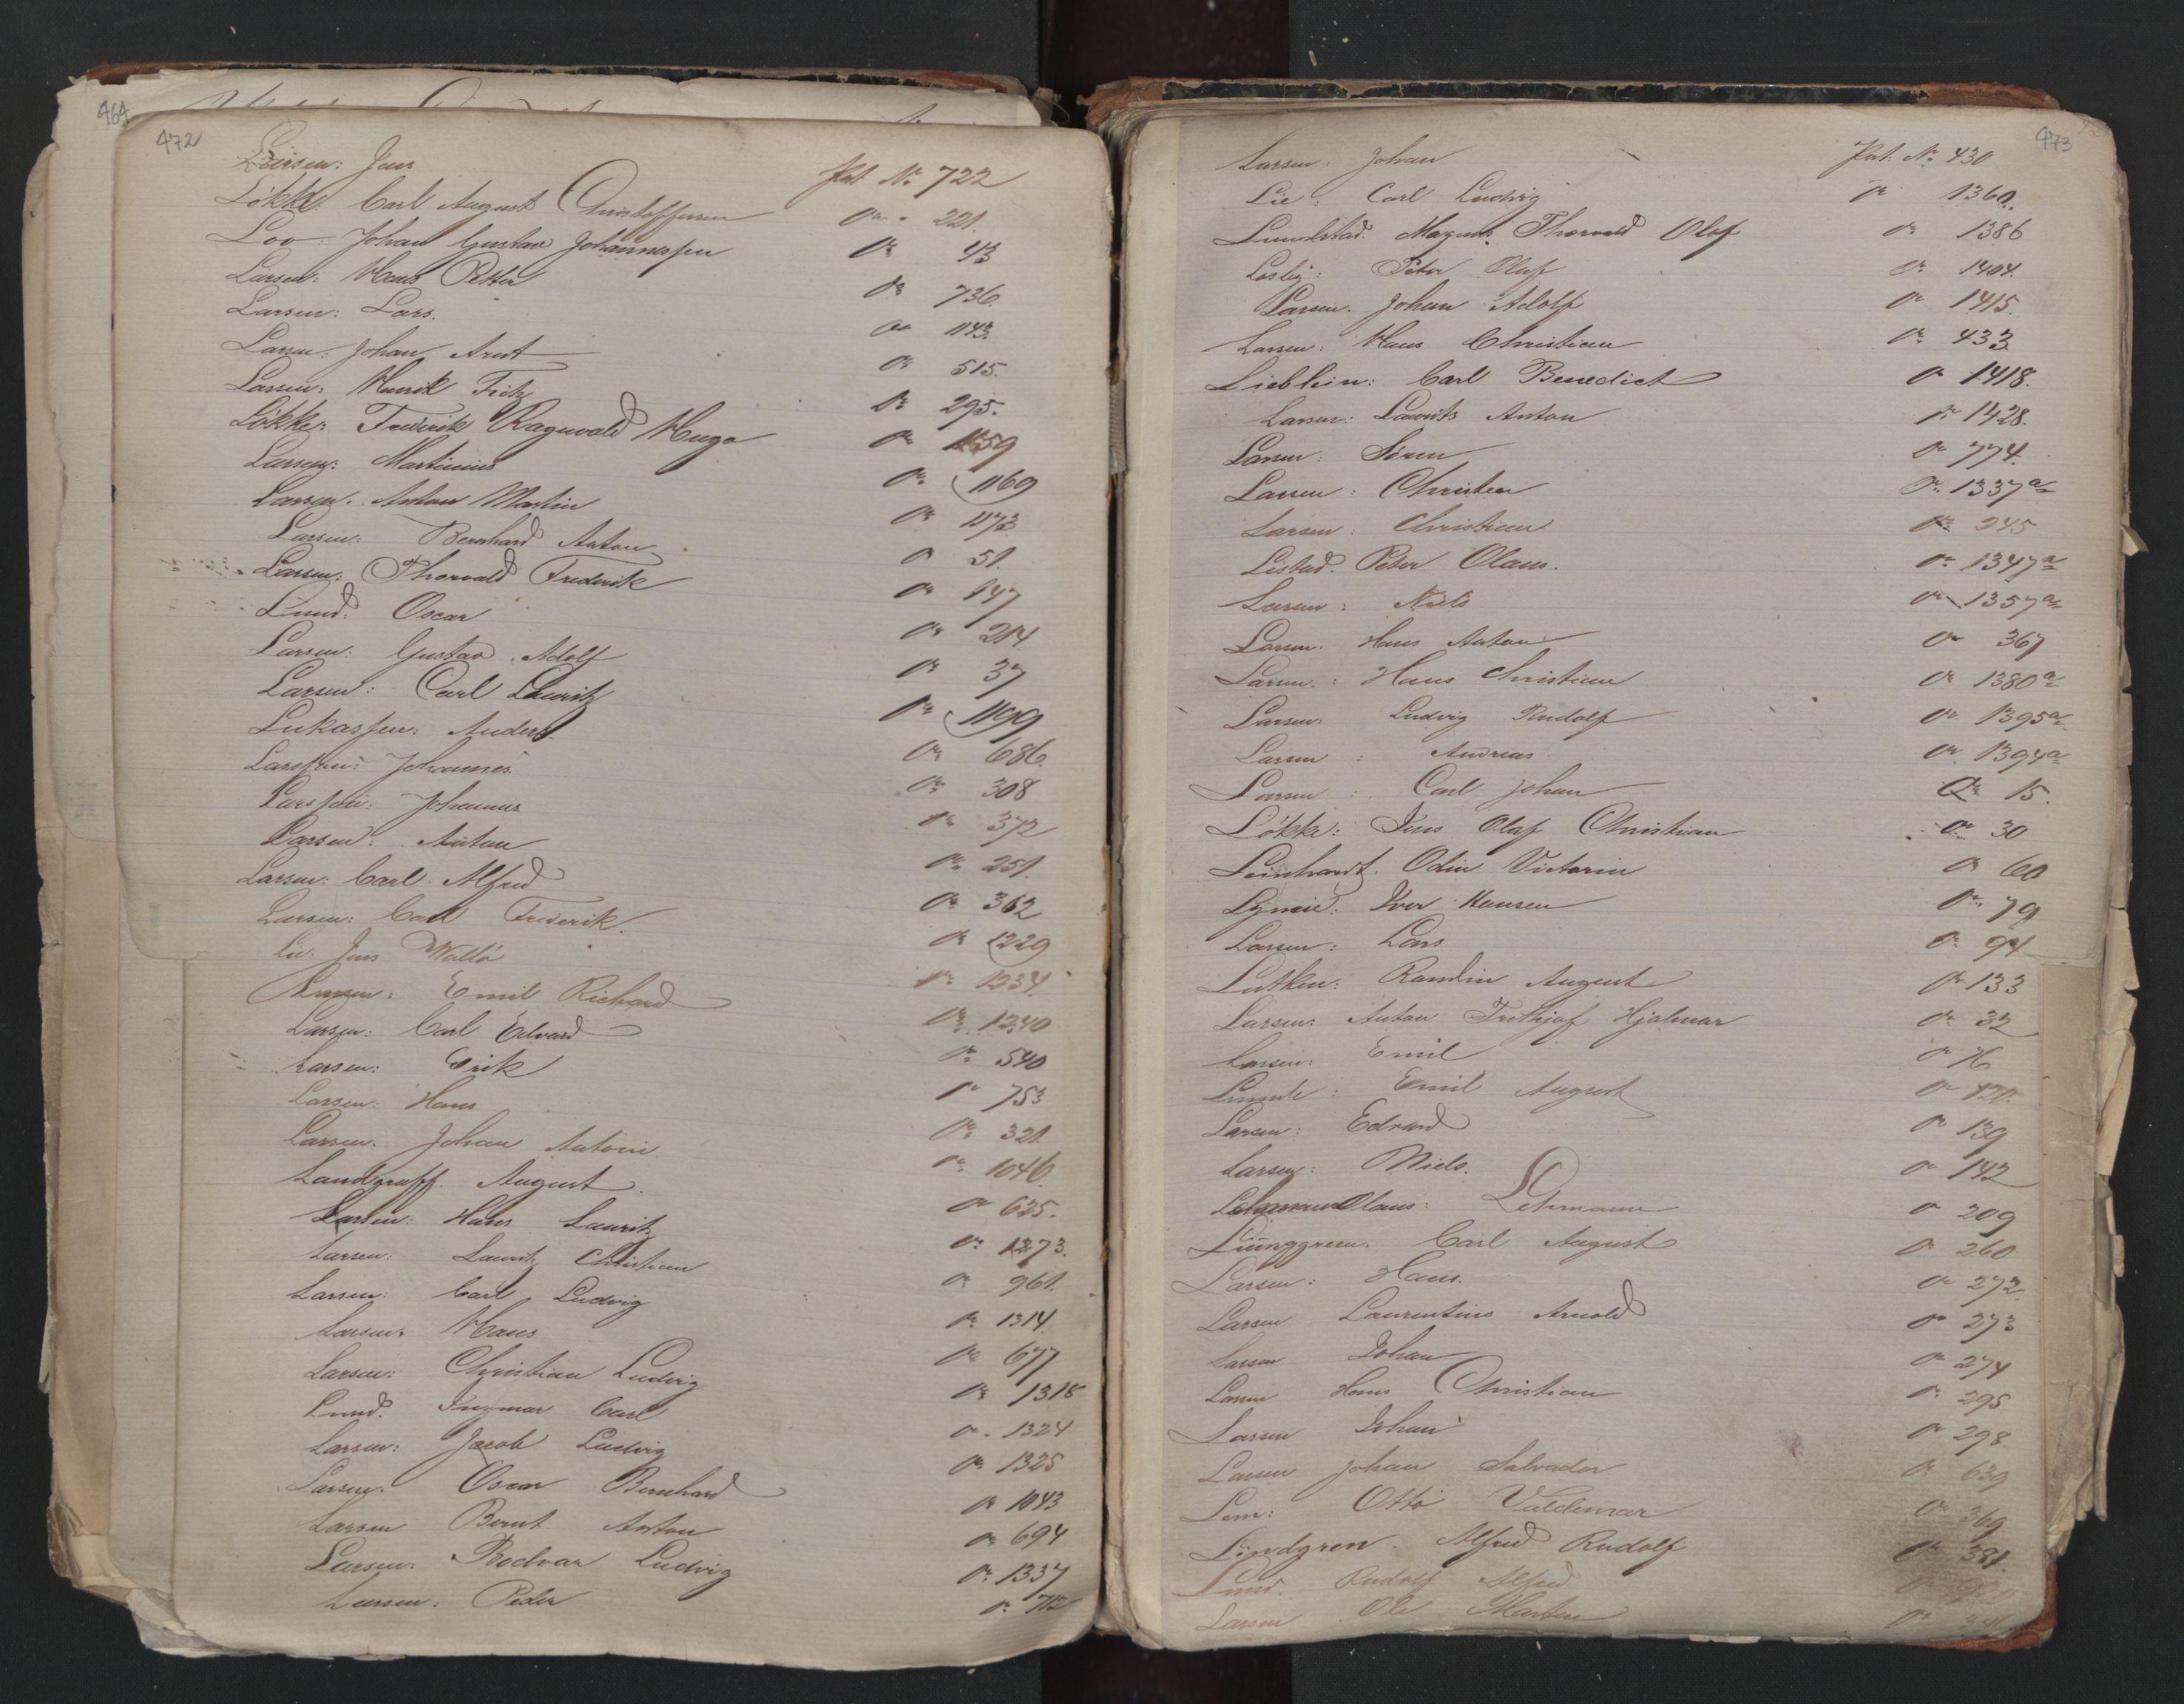 464
472
Larsen: Jens Pat. No 722
Løkke: Carl August Christoffersen " 221.
Loo Johan Gustav Johannessen " 43
Larsen: Hans Petter " 736.
Larsen: Lars. " 1143.
Larsen: Johan Arnt " 515.
Larsen: Henrik Fritz " 295.
Løkke: Frederik Ragnvald Hugo " 1159
Larsen: Martinius " 1169
Larsen. Anton Martin " 1173
Larsen: Bernhard Anton " 51.
Larsen: Thorvald Frederik " 147
Lund: Oscar " 214
Larsen: Gustav Adolf " 37
Larsen: Carl Lauritz " 1199
Lukassen: Anders. " 686.
Larssen: Johannes " 308
Larssen: Johannes " 372
Larsen: Anton " 251.
Larsen: Carl Alfred " 362
Larsen: Carl Frederik. " 1229
Lie: Jens Wallø " 1234.
Larsen: Emil Richard " 1240
Larsen: Carl Edvard " 540
Larsen: Erik " 753
Larsen: Hans " 321.
Larsen. Johan Anton " 1046.
Landgraff. August. " 625.
Larsen: Hans Lauritz " 1273.
Larsen: Lauritz Christian " 961.
Larsen: Carl Ludvig " 1314.
Larsen: Hans " 677
Larsen: Christian Ludvig " 1318
Lund. Ingmar Carl " 1324
Larsen: Jacob Ludvig " 1325
Larsen: Oscar Bernhard " 1043
Larsen Bernt Anton " 694
Larsen: Bodvar Ludvig " 1337
Larsen: Peder " 712
473
Larsen: Johan Pat. No 430
Lie: Carl Ludvig " 1360.
Lundstad. Magnus Thorvald Olaf " 1386
Losby: Peter Olaf " 1404.
Larsen. Johan Adolf " 1415.
Larsen: Hans Christian " 433
Lieblein: Carl Benedict " 1418.
Larsen: Laurits Anton " 1428.
Larsen: Søren " 774.
Larsen: Christen " 1337a
Larsen: Christian " 245
Listad. Peter Olaus. " 1347a
Larsen: Niels " 1357a
Larsen. Hans Anton " 367
Larsen: Hans Christian " 1380a
Larsen: Ludvig Rudolf " 1395a
Larsen: Andreas " 1394a
Larsen: Carl Johan " 15.
Løkke: Jens Olaf Christian " 30
Leinhardt. Odin Victorin " 60
Iver Hansen " 79
Larsen: Lars " 94
Lutken: August " 133
Larsen: Anton Frithjof Hjalmar " 32
Larsen: Emil " 76
Lunde: Emil August
Larsen: Edvard " 139
Larsen: Niels. " 142
Lehmann Olaus: Lehmann " 209
Liunggreen. Carl August " 260
Larsen: Hans. " 272
Larsen Laurentius Arnold " 273
Larsen Johan " 274
Larsen Hans Christian " 295
Larsen Johan " 298
Larsen Johan Salvador " 639
Lem: Otto Valdemar " 369
Lindgren. Alfred Rudolf " 381.
Lund. Rudolf Alfred
Larsen Ole Martin